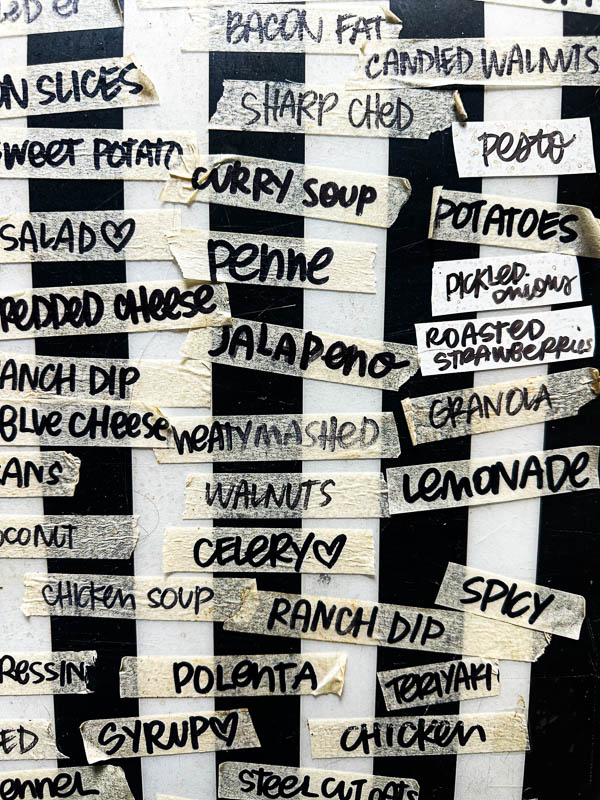 BACON FAT
CANDIED WALNUTS
ON SLICES
SHARP CHED
pesto
SWEET POTATO
CURRY SOUP
POTATOES
SALAD♡
Penne
PICKLED
onions
REDDED CHEESE
JALAPENO
ROASTED
STRAWBERRIES
ANCH DIP
GRANOLA
BLUE CHEESE
MEATYMASHED
ANS
WALNUTS
LEMONADE
OCONUT
CELERY♡
CHICKEN SOUP
RANCH DIP
SPICY
RESSIN
POLENTA
TERIYAKI
ED
SYRUP♡
CHICKEN
ENNEL
STEEL CUT OATS